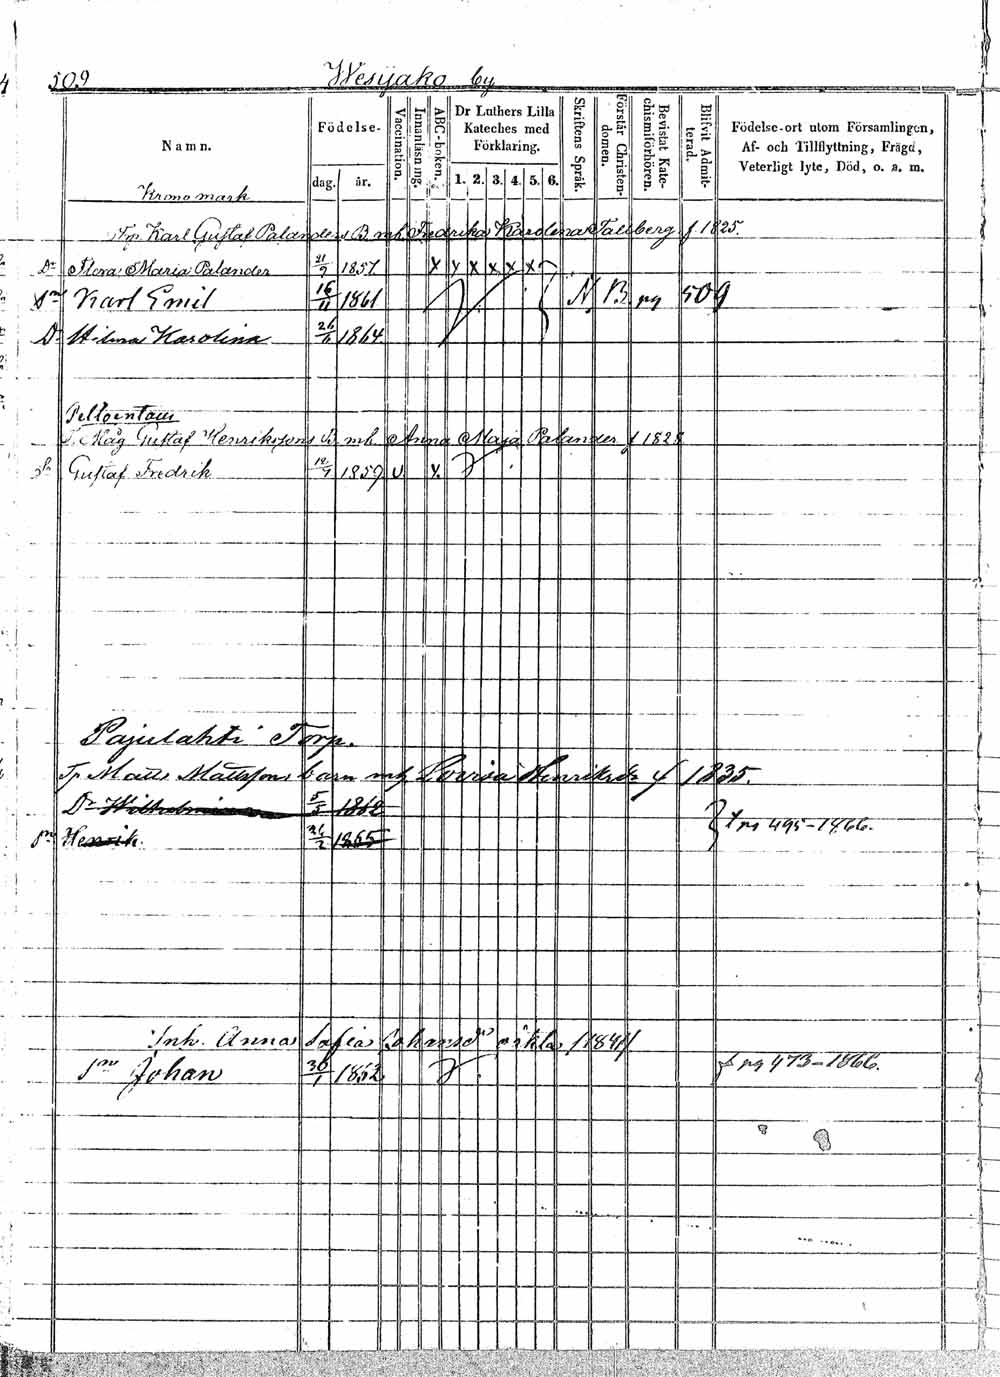 509 Wesijako by
Namn.
Födelse-
dag. år.
Vaccination.
Innanläsning.
ABC-boken.
Dr Luthers Lilla
Kateches med
Förklaring.
1. 2. 3. 4. 5. 6.
Skriftens Språk.
Förstår Christen-
domen.
Bevistat Kate-
chismiförhören.
Blifvit Admit-
terad.
Födelse-ort utom Församlingen,
Af- och Tillflyttning, Frägd,
Veterligt lyte, Död, o. a. m.
Krono mark
Tp. Karl Gustaf Palanders B. mh. Fredrika Karolina Tallberg f 1825.
Dr Flora Maria Palander 21/9 1857 x y x x x x
Sn Karl Emil 16/11 1861 N B pg 509
Dr Hilma Karolina 26/11 1864
Peltoentaus
Måg Gustaf Henrikssons B. mh. Anna Maja Palander f 1828
Sn Gustaf Fredrik 1859 v x
Pajulahti Torp.
Tp Matts Mattssons barn mh Lovisa Henriksdr f 1835.
Dr 5/5 1862
Sn Henrik. 26/2 1865
pg 495-1866.
Inh. Anna Sofia Johansdrs oäkta f 1841
Sn Johan 30/1 1852
f pg 473-1866.